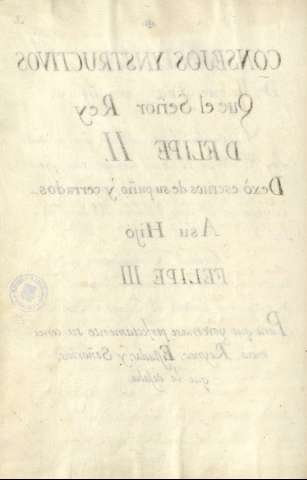 CONSEJOS YNSTRUCTIVOS
Que el Señor Rey
D FELIPE II.
Dexò escritos de su puño y cerrados
A su Hijo
FELIPE III
Para que governase perfectamente su
Reynos, Estados, y Señorios,
que le dejaba